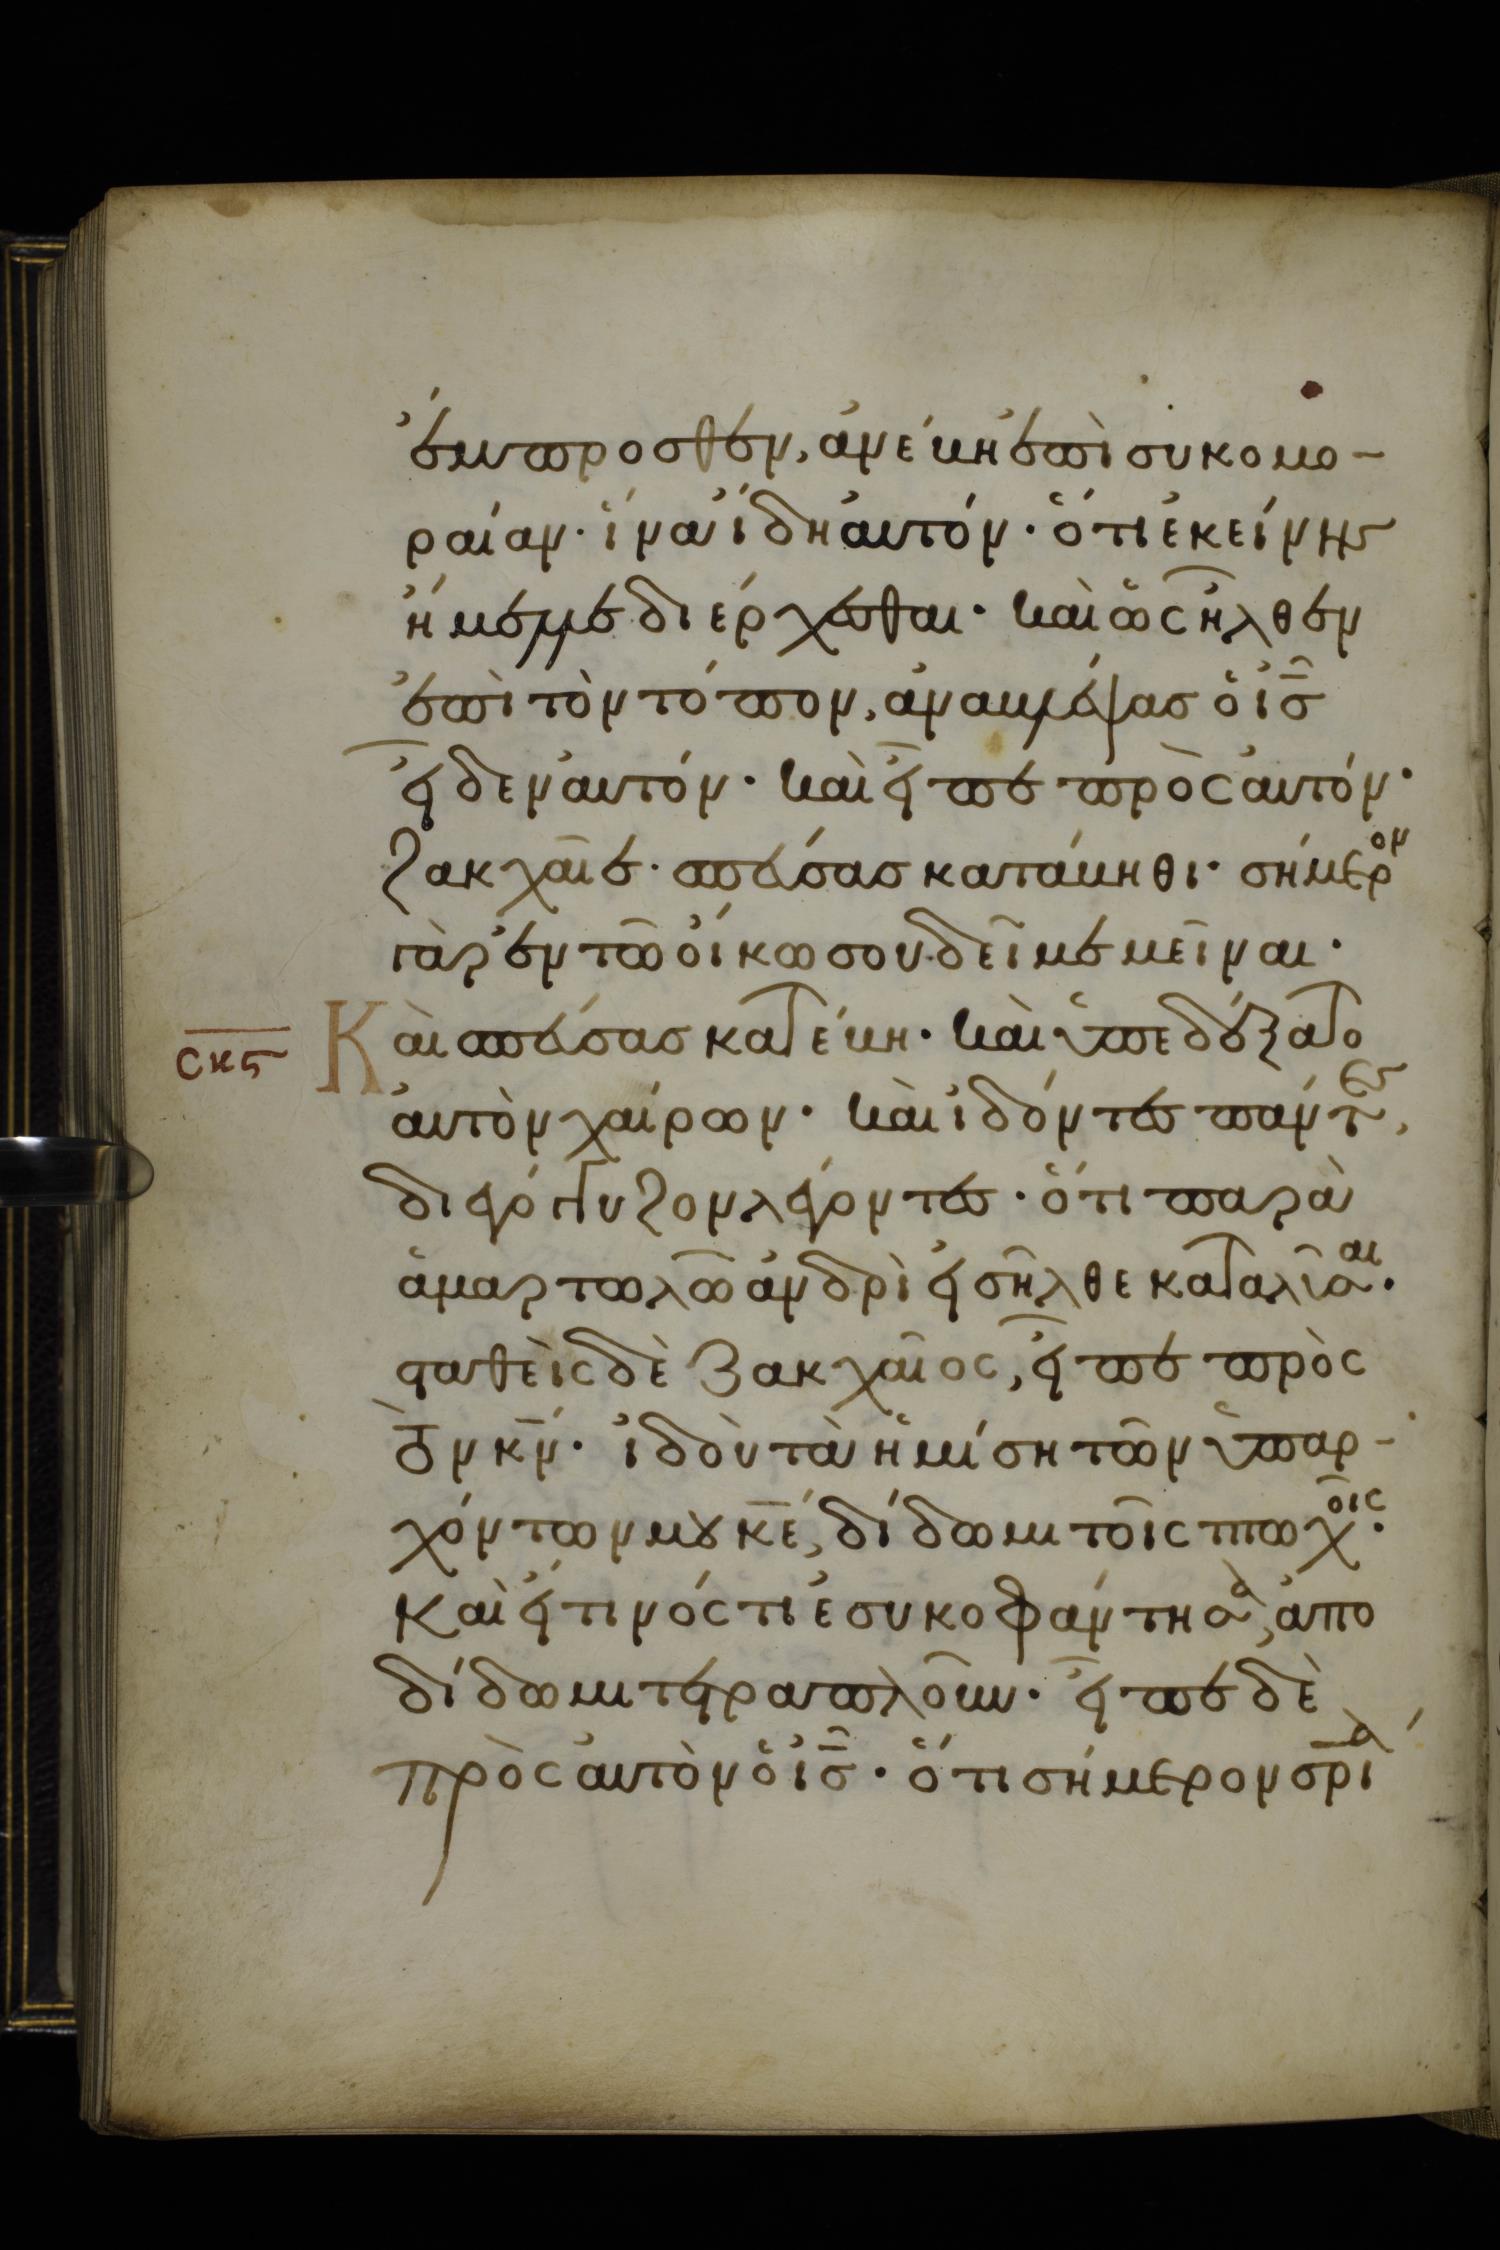 ἔμπροσθεν, ἀνέβη ἐπὶ συκομο-
ραίαν· ἵνα ἴδη αὐτόν· ὅτι ἐκείνης
ἤμελλε διέρχεσθαι· καὶ ὡς ἦλθεν
ἐπὶ τὸν τόπον, ἀναβλέψας ὁ ἰ̅ς̅
εἶδεν αὐτόν· καὶ εἶπε πρὸς αὐτόν·
Ζακχαῖε· σπεύσας κατάβηθι· σήμερον
γὰρ ἐν τῶ οἴκω σου δεῖ με μεῖναι·
σκϛ Καὶ σπεύσας κατέβη· καὶ ὑπεδέξατο
αὐτὸν χαίρων· καὶ ἰδόντες πάντες,
διεγόγγυζον λέγοντες· ὅτι παρὰ
ἁμαρτωλῶ ἀνδρὶ εἰσῆλθε καταλῦσαι·
σταθεὶς δὲ Ζακχαῖος, εἶπε πρὸς
τὸν κ̅ν̅· ἰδοὺ τὰ ἡμίση τῶν ὑπαρ-
χόντων μου κ̅ε̅, δίδωμι τοῖς πτωχοῖς·
Καὶ εἴ τινός τι ἐσυκοφάντησα, ἀπο
δίδωμι τετραπλοῦν· εἶπε δὲ
πρὸς αὐτὸν ὁ ἰ̅ς̅· ὅτι σήμερον σ̅ρ̅ί̅α